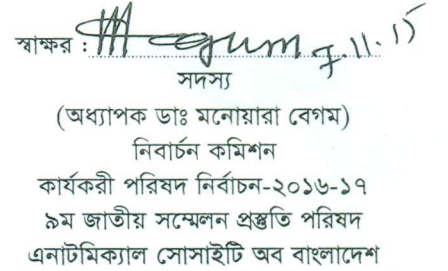 স্বাক্ষর : MBegum 7.11.15
সদস্য
(অধ্যাপক ডাঃ মনোয়ারা বেগম)
নিবার্চন কমিশন
কার্যকরী পরিষদ নির্বাচন-২০১৬-১৭
৯ম জাতীয় সম্মেলন প্রস্তুতি পরিষদ
এনাটমিক্যাল সোসাইটি অব বাংলাদেশ